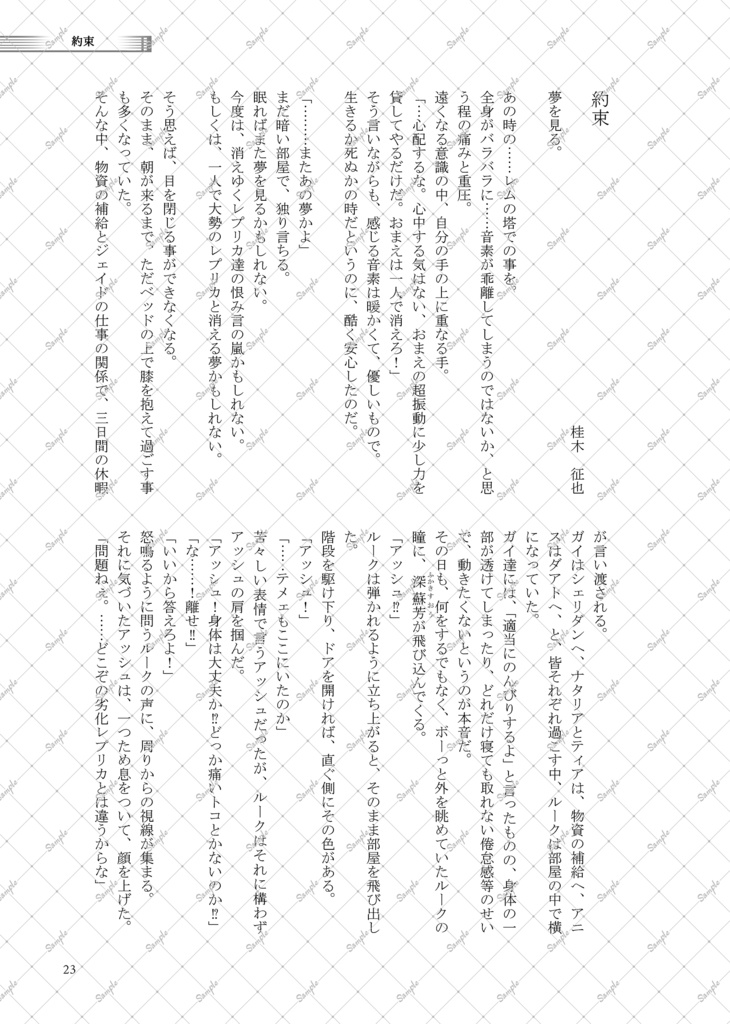 約束
約束
桂木 征也
夢を見る。
あの時の……レムの塔での事を。
全身がバラバラに……音素が乖離してしまうのではないか、と思
う程の痛みと重圧。
遠くなる意識の中、自分の手の上に重なる手。
「…心配するな。心中する気はない、おまえの超振動に少し力を
貸してやるだけだ。おまえは一人で消えろ!」
そう言いながらも、感じる音素は暖かくて、優しいもので。
生きるか死ぬかの時だというのに、酷く安心したのだ。
「………またあの夢かよ」
まだ暗い部屋で、独り言ちる。
眠ればまた夢を見るかもしれない。
今度は、消えゆくレプリカ達の恨み言の嵐かもしれない。
もしくは、一人で大勢のレプリカと消える夢かもしれない。
そう思えば、目を閉じる事ができなくなる。
そのまま、朝が来るまで、ただベッドの上で膝を抱えて過ごす事
も多くなっていた。
そんな中、物資の補給とジェイドの仕事の関係で、三日間の休暇
が言い渡される。
ガイはシェリダンへ、ナタリアとティアは、物資の補給へ、アニ
スはダアトへ、と、皆それぞれ過ごす中、ルークは部屋の中で横
になっていた。
ガイ達には「適当にのんびりするよ」と言ったものの、身体の一
部が透けてしまったり、どれだけ寝ても取れない倦怠感等のせい
で、動きたくないというのが本音だ。
その日も、何をするでもなく、ボーっと外を眺めていたルークの
瞳に、深蘇芳が飛び込んでくる。
ふかきすおう
「アッシュ!?」
ルークは弾かれるように立ち上がると、そのまま部屋を飛び出し
た。
階段を駆け下り、ドアを開ければ、直ぐ側にその色がある。
「アッシュ!」
「……テメェもここにいたのか」
苦々しい表情で言うアッシュだったが、ルークはそれに構わず
アッシュの肩を掴んだ。
「アッシュ!身体は大丈夫か!?どっか痛いトコとかないのか!?」
「な……!離せ!!」
「いいから答えろよ!」
怒鳴るように問うルークの声に、周りからの視線が集まる。
それに気づいたアッシュは、一つため息をついて、顔を上げた。
「問題ねぇ。……どこぞの劣化レプリカとは違うからな」
23
Sample